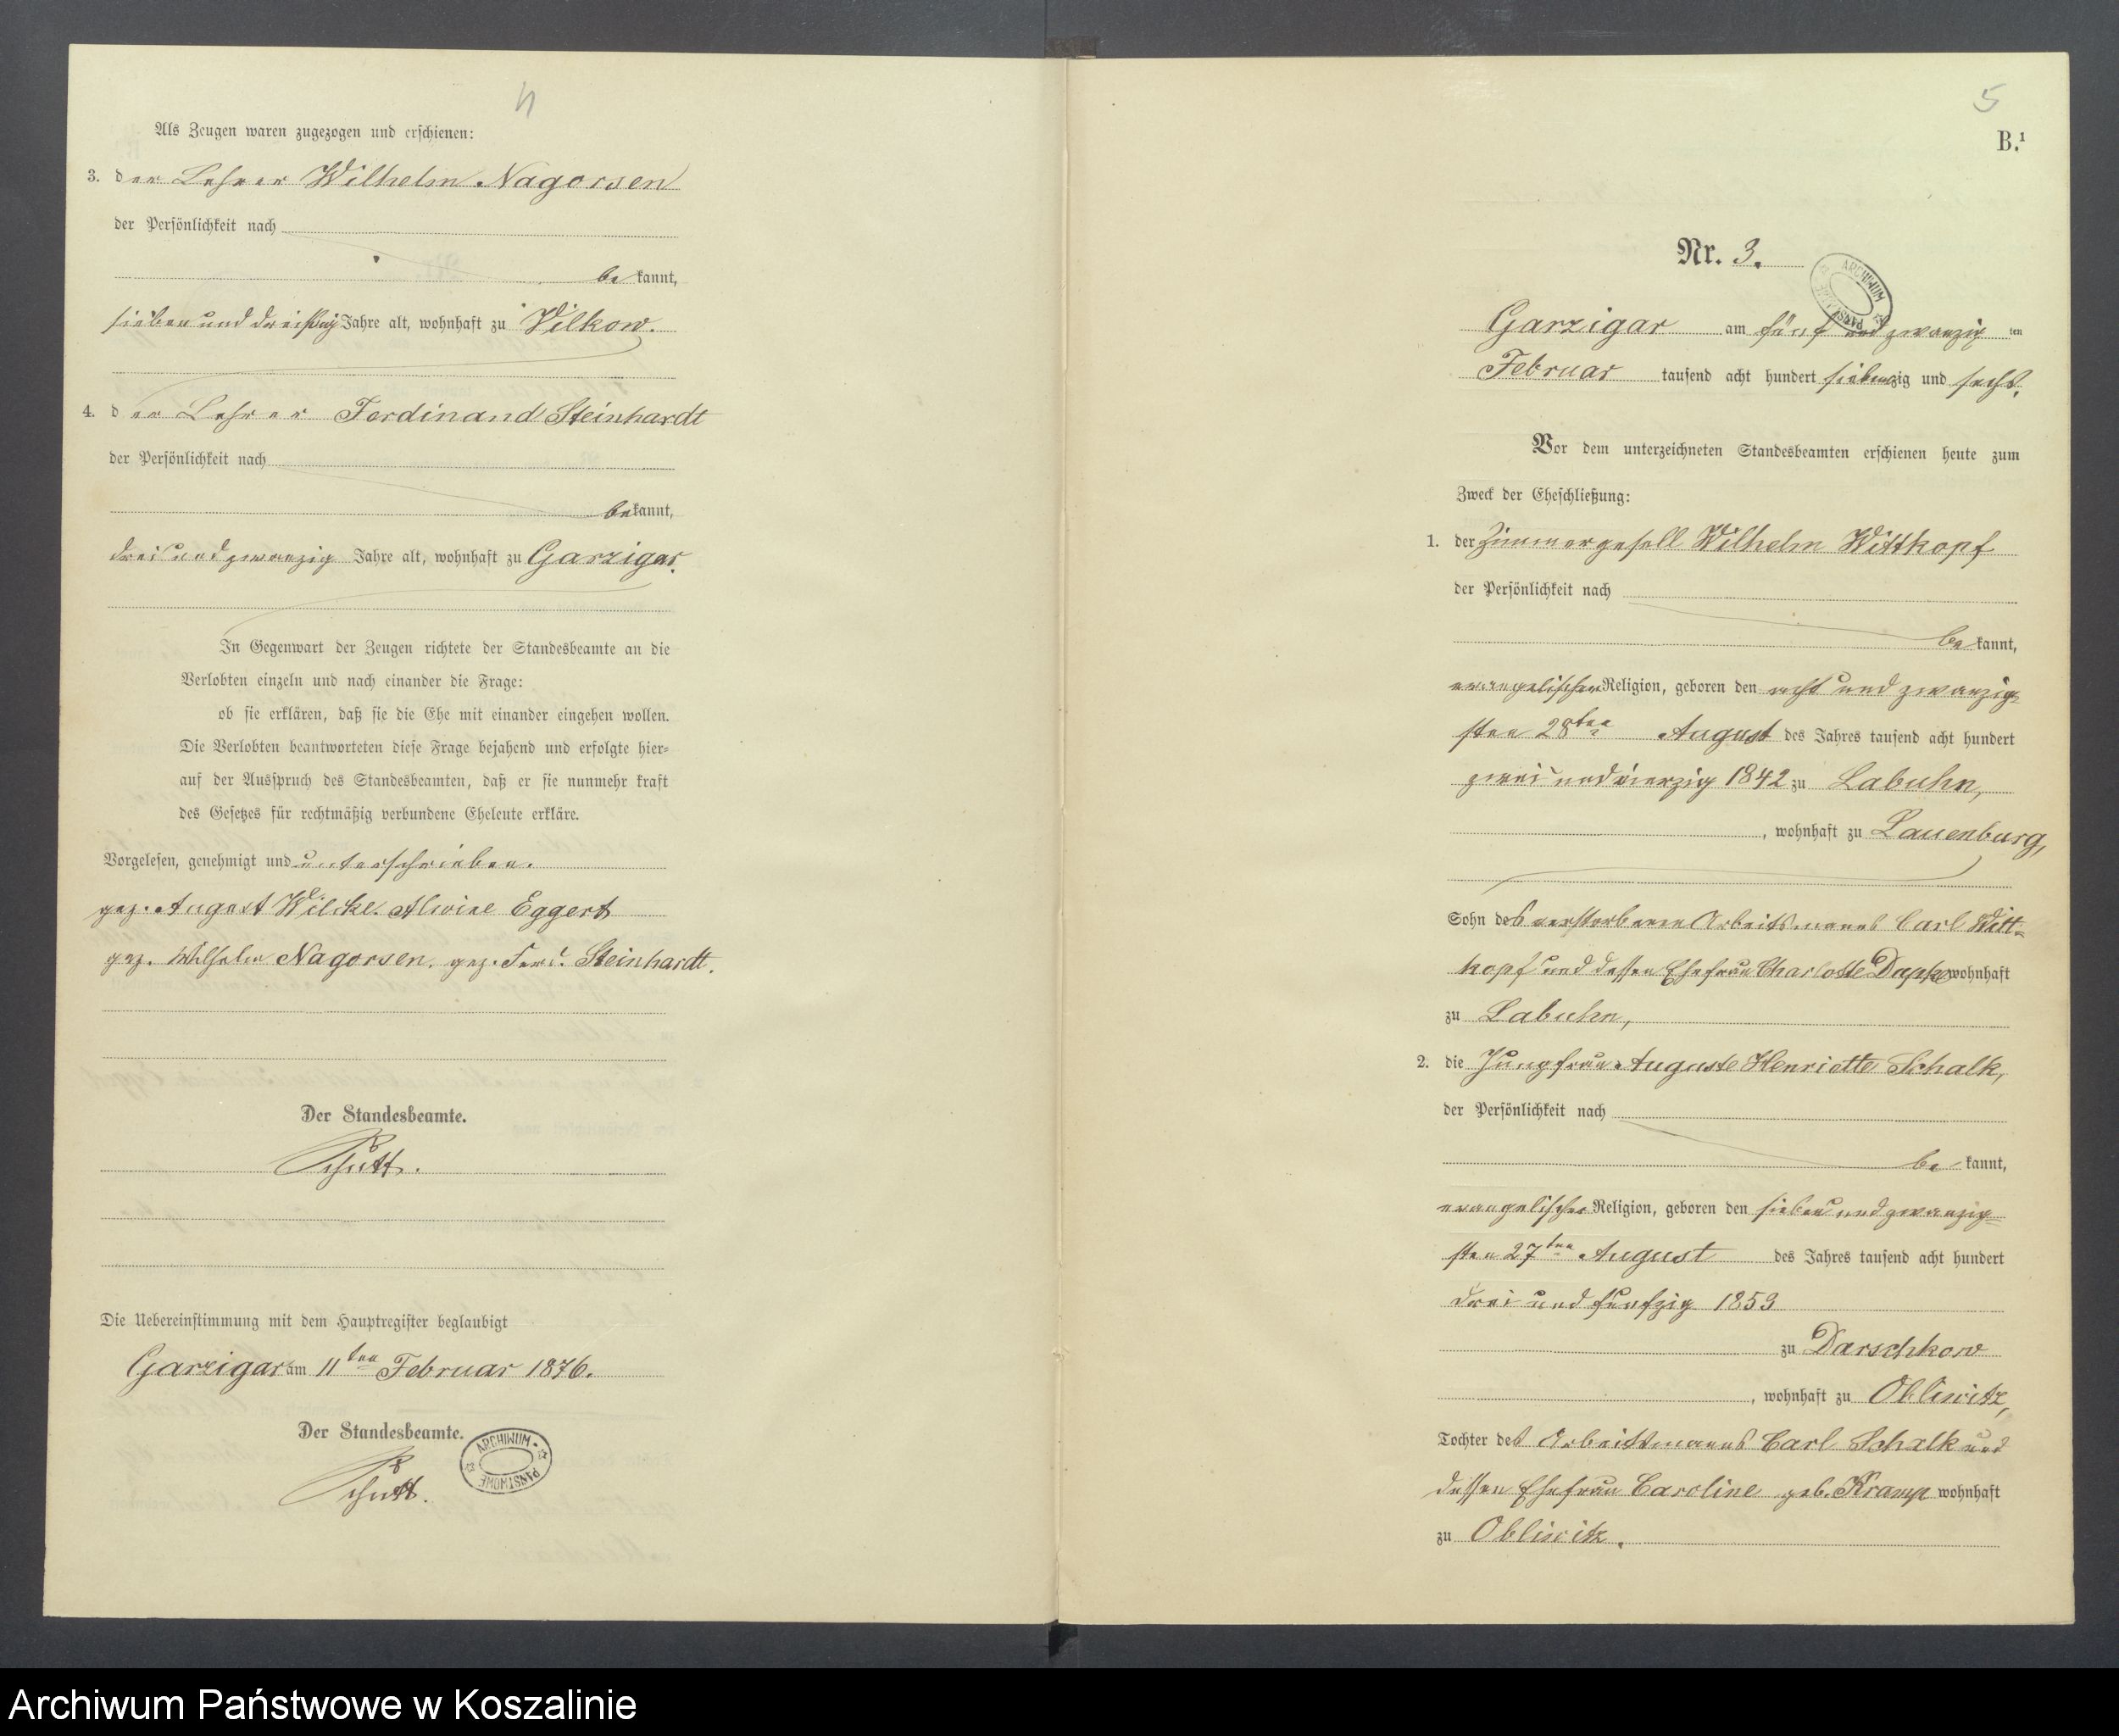 4
Als Zeugen waren zugezogen und erschienen:
3. der Lehrer Wilhelm Nagorsen
der Persönlichkeit nach
bekannt,
sieben und dreißig Jahre alt, wohnhaft zu Vilkow.
4. der Lehrer Ferdinand Steinhardt
der Persönlichkeit nach
bekannt,
drei und zwanzig Jahre alt, wohnhaft zu Garzigar.
In Gegenwart der Zeugen richtete der Standesbeamte an die
Verlobten einzeln und nach einander die Frage:
ob sie erklären, daß sie die Ehe mit einander eingehen wollen.
Die Verlobten beantworteten diese Frage bejahend und erfolgte hier-
auf der Ausspruch des Standesbeamten, daß er sie nunmehr kraft
des Gesetzes für rechtmäßig verbundene Eheleute erkläre.
Vorgelesen, genehmigt und unterschrieben.
gez. August Wilcke. Alwine Eggert
gez. Wilhelm Nagorsen. gez. Ferd. Steinhardt.
Der Standesbeamte.
Die Uebereinstimmung mit dem Hauptregister beglaubigt
Garzigar am 11ten Februar 1876.
Der Standesbeamte.
ARCHIWUM PAŃSTWOWE
5
B.¹
Nr. 3.
ARCHIWUM PAŃSTWOWE
Garzigar am fünf und zwanzig ten
Februar tausend acht hundert siebenzig und sechs.
Vor dem unterzeichneten Standesbeamten erschienen heute zum
Zweck der Eheschließung:
1. der Zimmergesell Wilhelm Wittkopf
der Persönlichkeit nach
bekannt,
evangelischer Religion, geboren den acht und zwanzig-
sten 28ten August des Jahres tausend acht hundert
zwei und vierzig 1842 zu Labuhn,
, wohnhaft zu Lauenburg,
Sohn des verstorbenen Arbeitsmanns Carl Witt-
kopf und dessen Ehefrau Charlotte wohnhaft
zu Labuhn,
2. die Jungfrau Auguste Henriette Schalk,
der Persönlichkeit nach
bekannt,
evangelischer Religion, geboren den sieben und zwanzig-
sten 27ten August des Jahres tausend acht hundert
drei und fünfzig 1853
zu Darschkow
, wohnhaft zu Obliwitz,
Tochter des Arbeitsmanns Carl Schalk und
dessen Ehefrau Caroline geb. Kramp wohnhaft
zu Obliwitz.
Archiwum Państwowe w Koszalinie